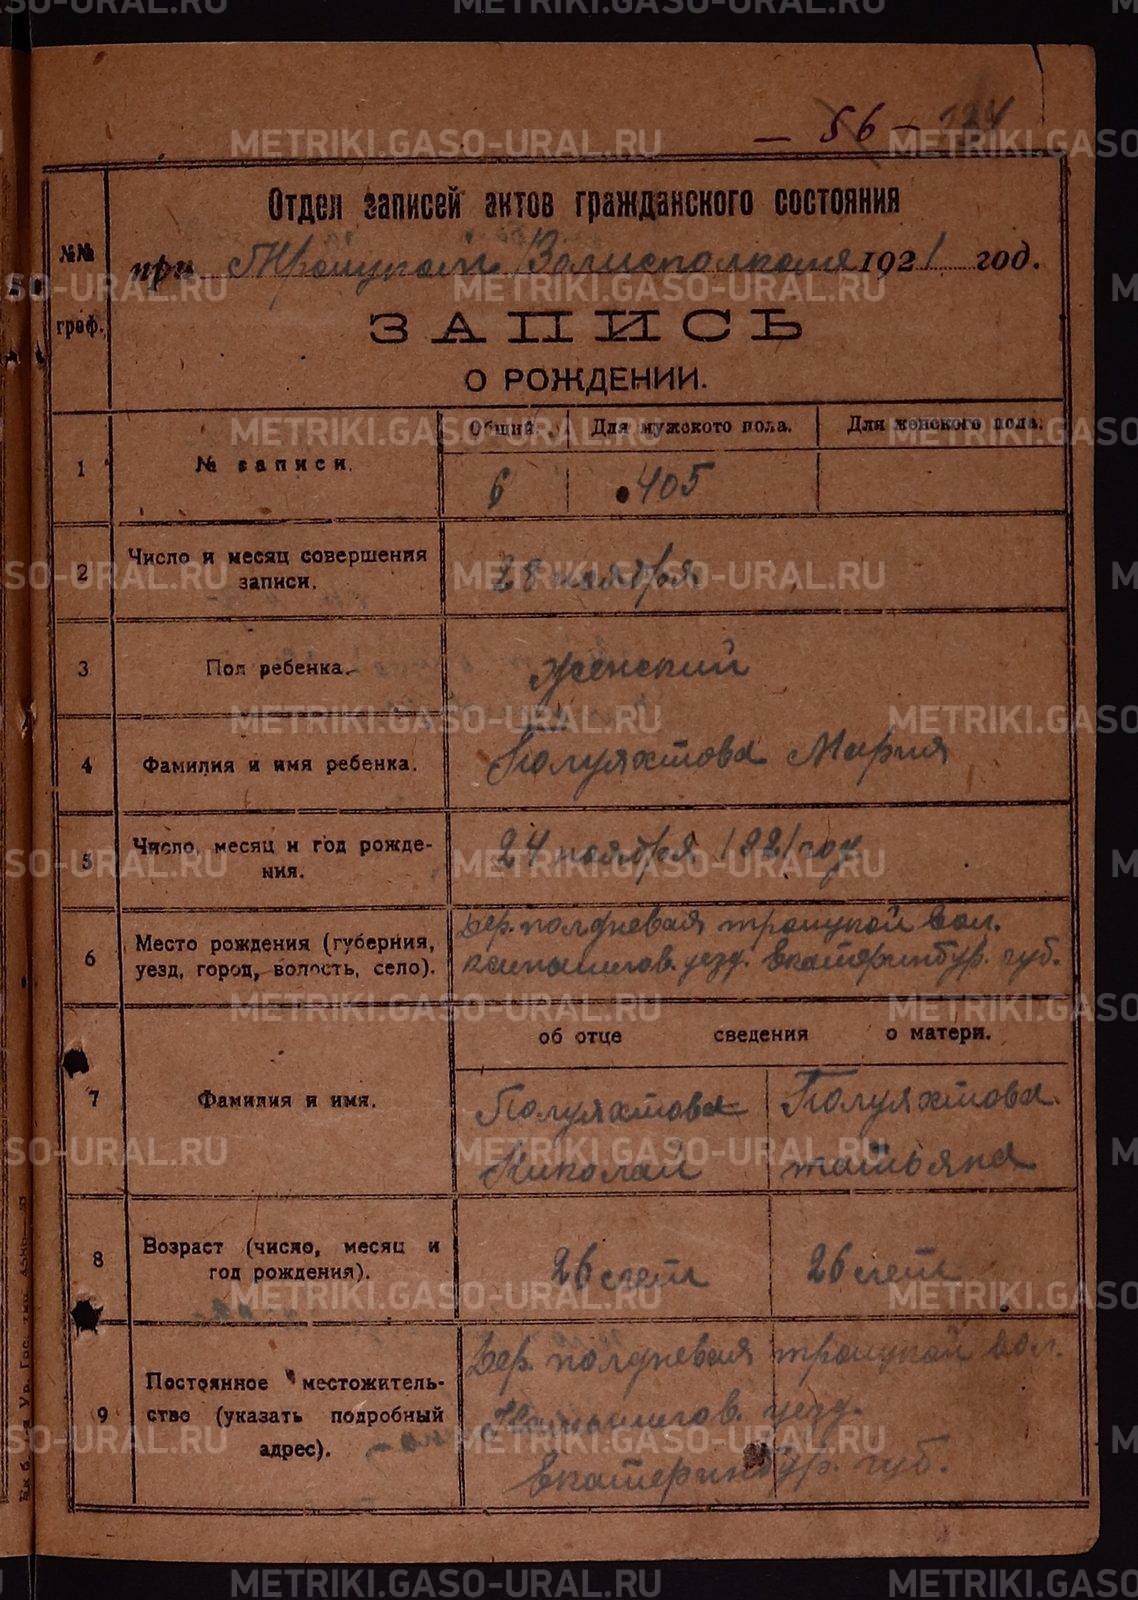 — 56 — 124
Отдел записей актов гражданского состояния
при Троицком Волисполкоме 1921 год.
№№ граф.
ЗАПИСЬ
О РОЖДЕНИИ.
Общий. Для мужского пола. Для женского пола.
1 № записи. 6 405
2 Число и месяц совершения записи. 28 ноября
3 Пол ребенка. Женский
4 Фамилия и имя ребенка. Полуяхтова Мария
5 Число, месяц и год рождения. 24 ноября 1921 году
6 Место рождения (губерния, уезд, город, волость, село).
Дер. полдневая троицкой вол.
камышлов. уезд. Екатеринбур. губ.
об отце сведения о матери.
7 Фамилия и имя.
Полуяхтова Полуяхтова
Николай татьяна
8 Возраст (число, месяц и год рождения). 26 лет 26 лет
9 Постоянное местожительство (указать подробный адрес).
Дер. полдневая троицкой вол.
Камышлов. уезд.
Екатеринбур. губ.
METRIKI.GASO-URAL.RU